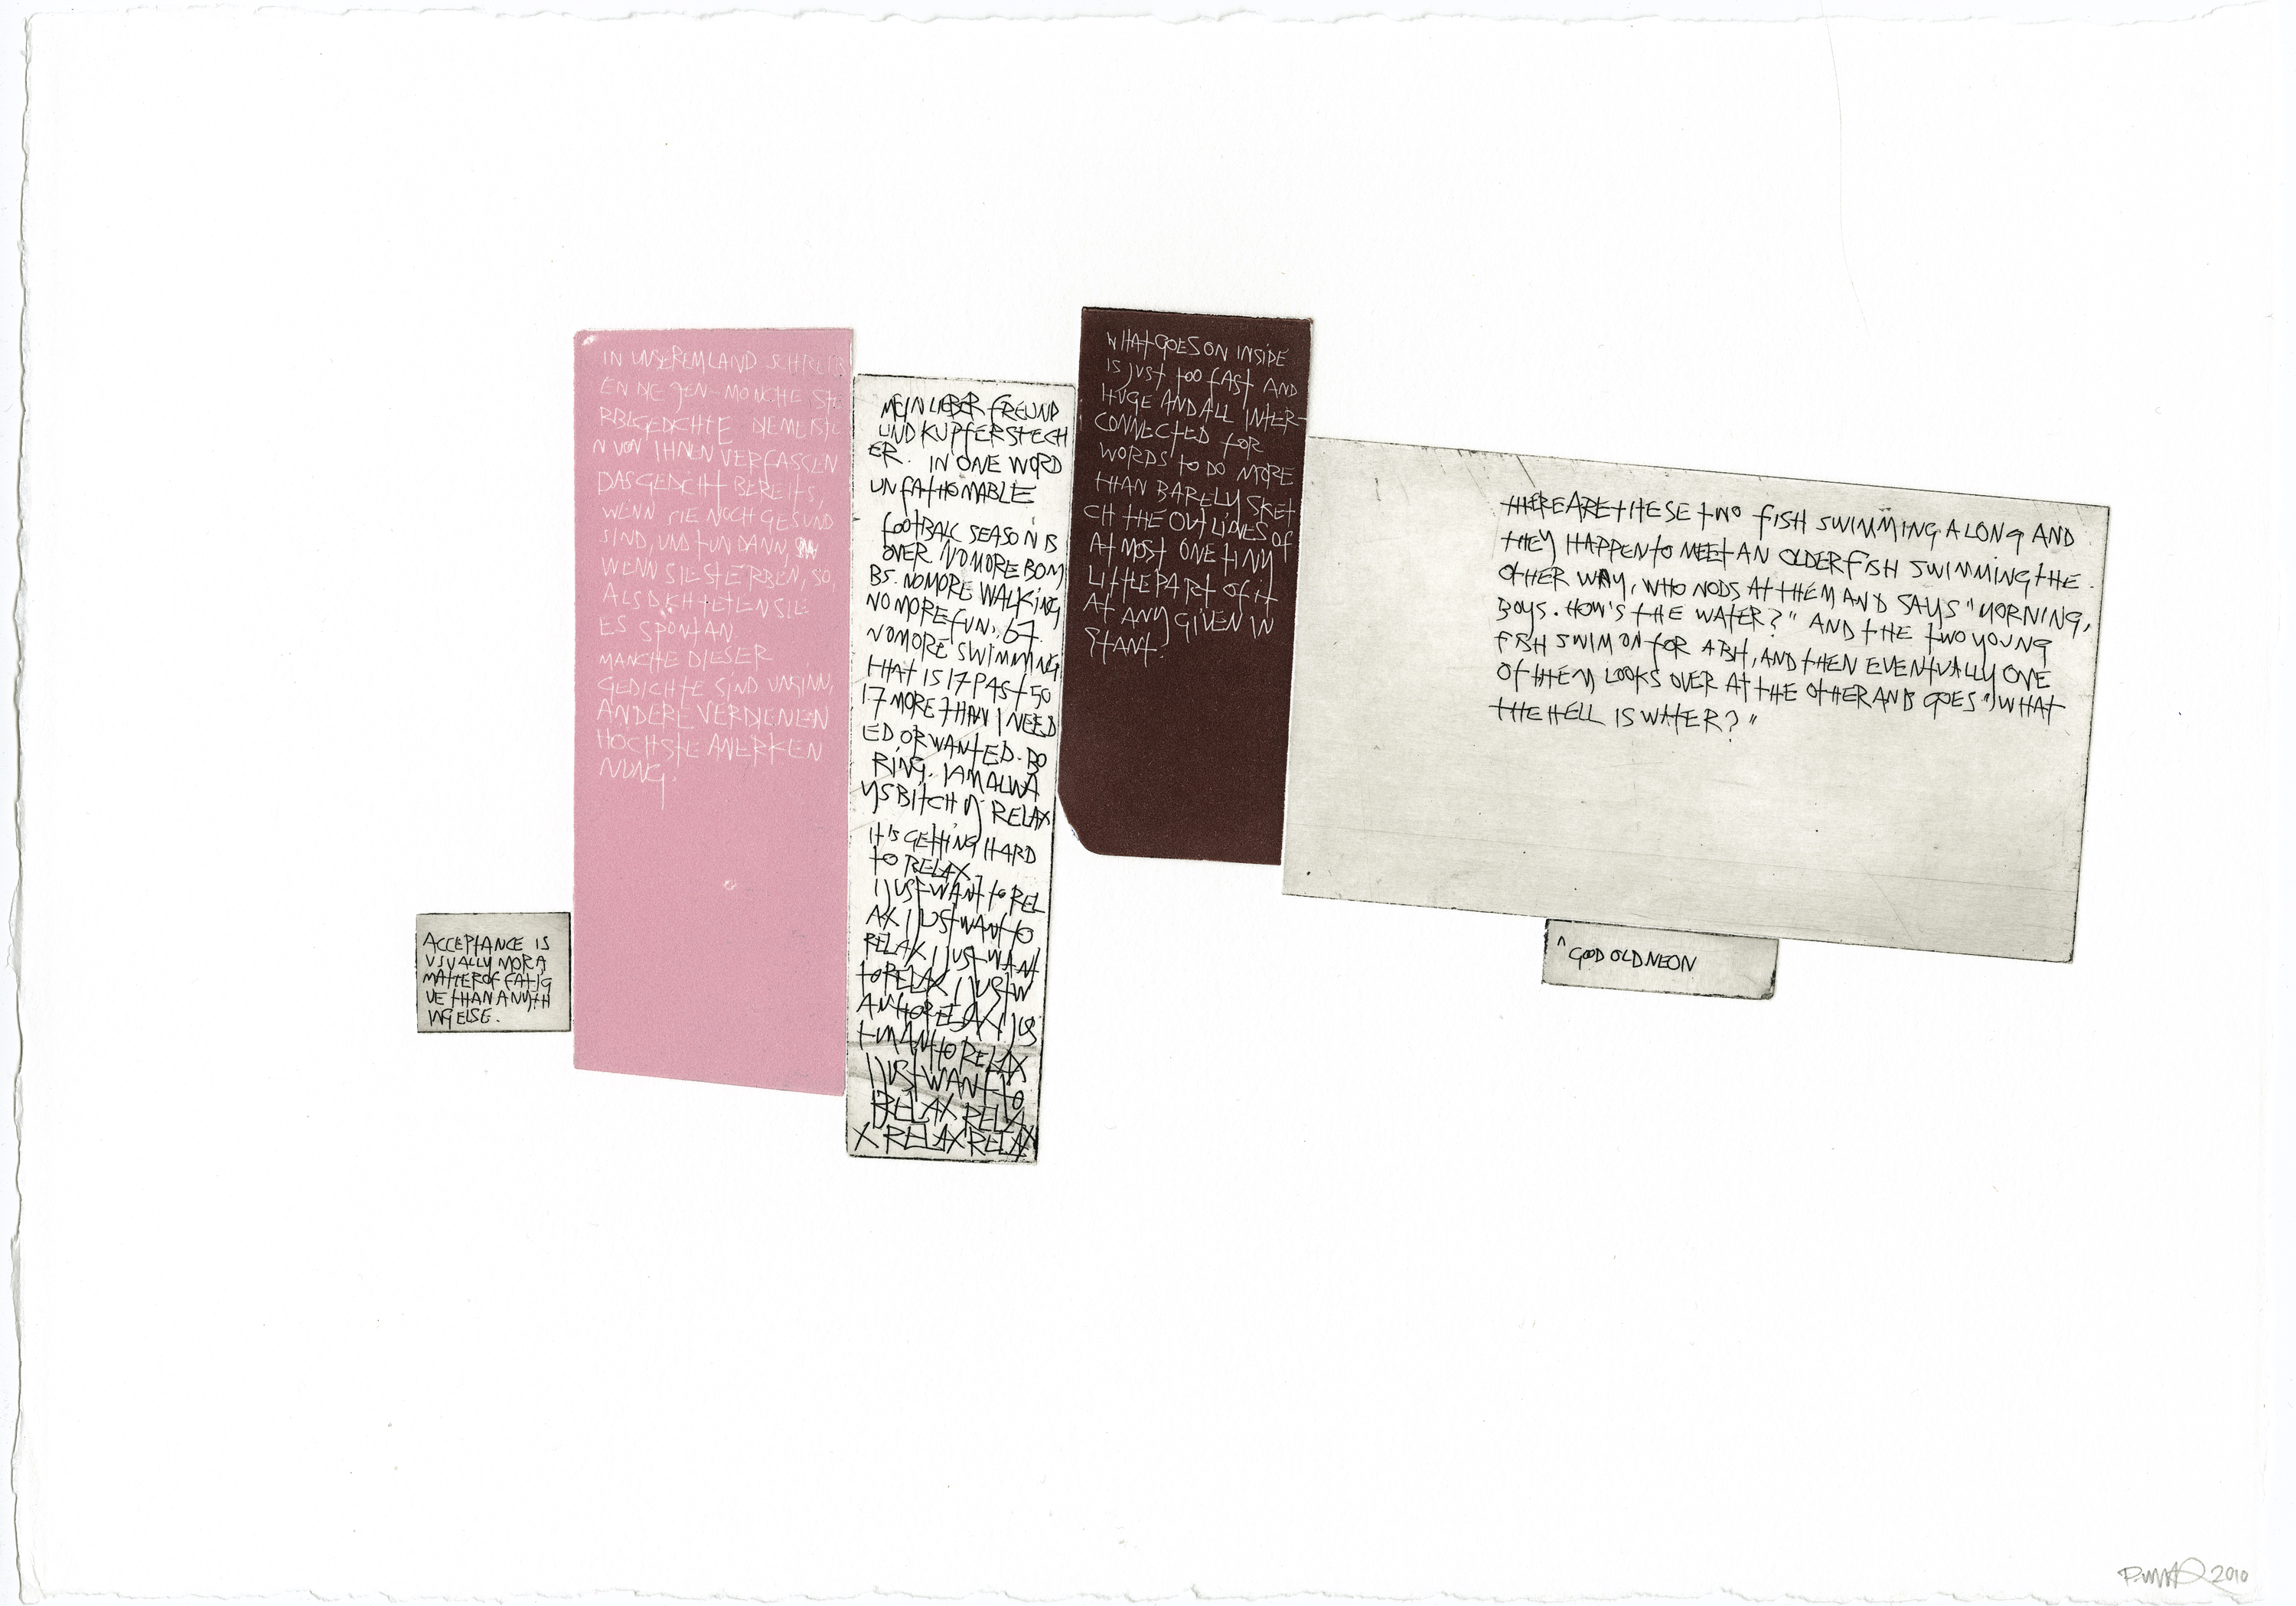 ACCEPTANCE IS
USUALLY MOR A
MATTER OF FATIG
UE THAN ANYTH
ING ELSE.
IN UNSEREM LAND SCHREIB
EN DIE ZEN-MÖNCHE STE
RBEGEDICHTE DIE MEISTE
N VON IHNEN VERFASSEN
DAS GEDICHT BEREITS,
WENN SIE NOCH GESUND
SIND, UND TUN DANN,
WENN SIE STERBEN, SO,
ALS DICHTETEN SIE
ES SPONTAN.
MANCHE DIESER
GEDICHTE SIND UNSINN,
ANDERE VERDIENEN
HÖCHSTE ANERKEN
NUNG.
MEIN LIEBER FREUND
UND KUPFERSTECH
ER. IN ONE WORD
UNFATHOMABLE
FOOTBALL SEASON IS
OVER. NO MORE BOM
BS. NO MORE WALKING
NO MORE FUN. 67.
NO MORE SWIMMING
THAT IS 17 PAST 50
17 MORE THAN I NEED
ED OR WANTED. BO
RING. I AM ALWA
YS BITCHY RELAX
IT'S GETTING HARD
TO RELAX
I JUST WANT TO REL
AX I JUST WANT TO
RELAX I JUST WANT
TO RELAX I JUST W
ANT TO RELAX I JUS
T WANT TO RELAX
I JUST WANT TO
RELAX RELA
X RELAX RELAX
WHAT GOES ON INSIDE
IS JUST TOO FAST AND
HUGE AND ALL INTER-
CONNECTED FOR
WORDS TO DO MORE
THAN BARELY SKET
CH THE OUTLINES OF
AT MOST ONE TINY
LITTLE PART OF IT
AT ANY GIVEN IN
STANT.
THERE ARE THESE TWO FISH SWIMMING ALONG AND
THEY HAPPEN TO MEET AN OLDER FISH SWIMMING THE
OTHER WAY, WHO NODS AT THEM AND SAYS "MORNING,
BOYS. HOW'S THE WATER?" AND THE TWO YOUNG
FISH SWIM ON FOR A BIT, AND THEN EVENTUALLY ONE
OF THEM LOOKS OVER AT THE OTHER AND GOES "WHAT
THE HELL IS WATER?"
^GOOD OLD NEON
2010